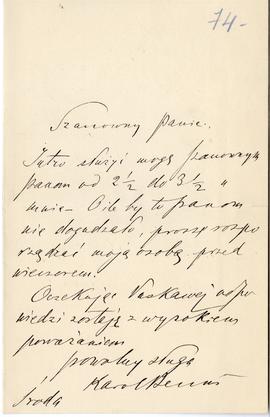 74-
Szanowny Panie.
Jutro służyć mogę szanownym
panom od 2 1/2 do 3 1/2 u
mnie - O ile by to panom
nie dogadzało, proszę rozpo
rządzać moją osobą przed
wieczorem.
Oczekując łaskawej odpo
wiedzi zostaję z wysokiem
poważaniem
powolny sługa
Karol Benni
Środa